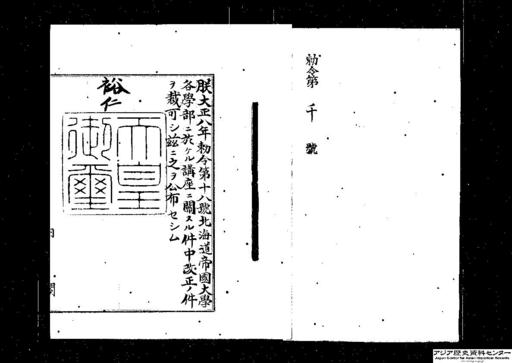 勅令第千號
朕大正八年勅令第十八號北海道帝國大學
各學部ニ於ケル講座ニ關スル件中改正ノ件
ヲ裁可シ茲ニ之ヲ公布セシム
裕仁
天皇
御璽
内閣
アジア歴史資料センター
Japan Center for Asian Historical Records